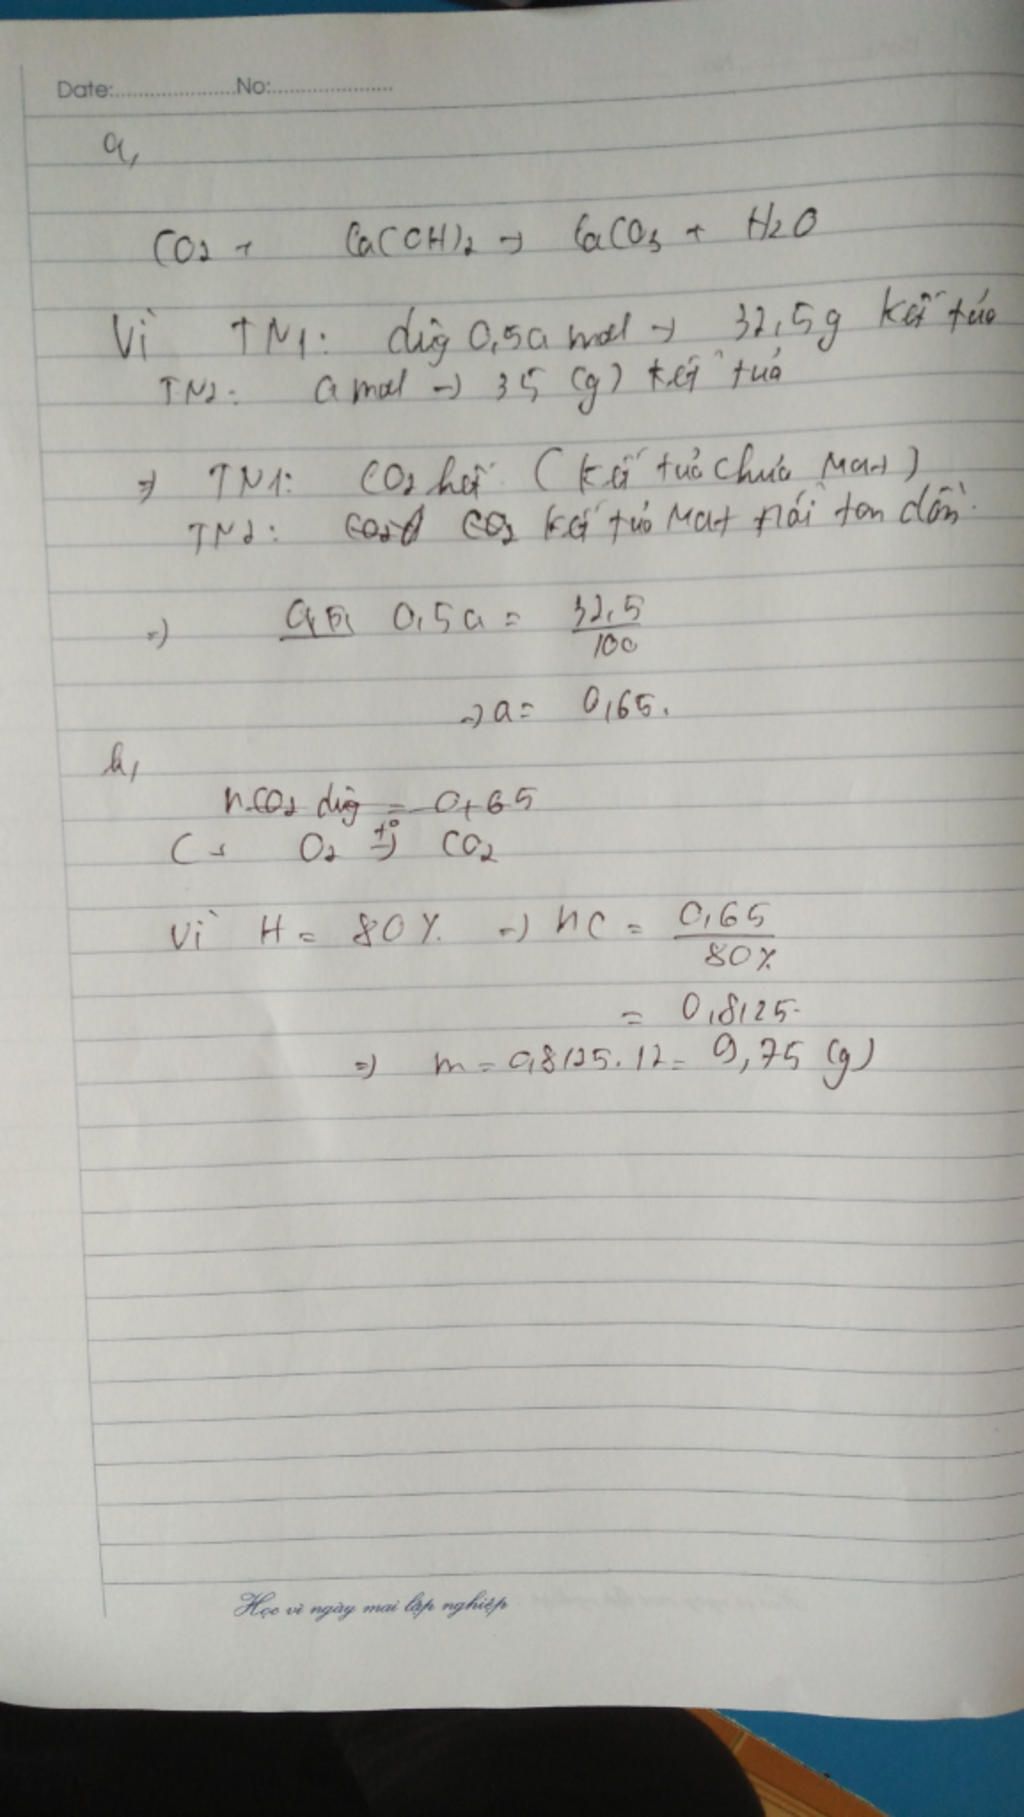 Date:.....................No:.....................
a,
CO2 + Ca(OH)2 → CaCO3 + H2O
Vì TN1: dùng 0,5a mol → 32,5g kết tủa
TN2: a mol → 35 (g) kết tủa
⇒ TN1: CO2 hết (kết tủa chưa Max)
TN2: CO2 kết tủa Max rồi tan dần.
⇒ 0,5a = 32,5/100
⇒ a = 0,65.
b,
nCO2 dùng = 0,65
C + O2 t°→ CO2
Vì H = 80% ⇒ nC = 0,65/80%
= 0,8125.
⇒ m = 0,8125.12 = 9,75 (g)
Học vì ngày mai lập nghiệp